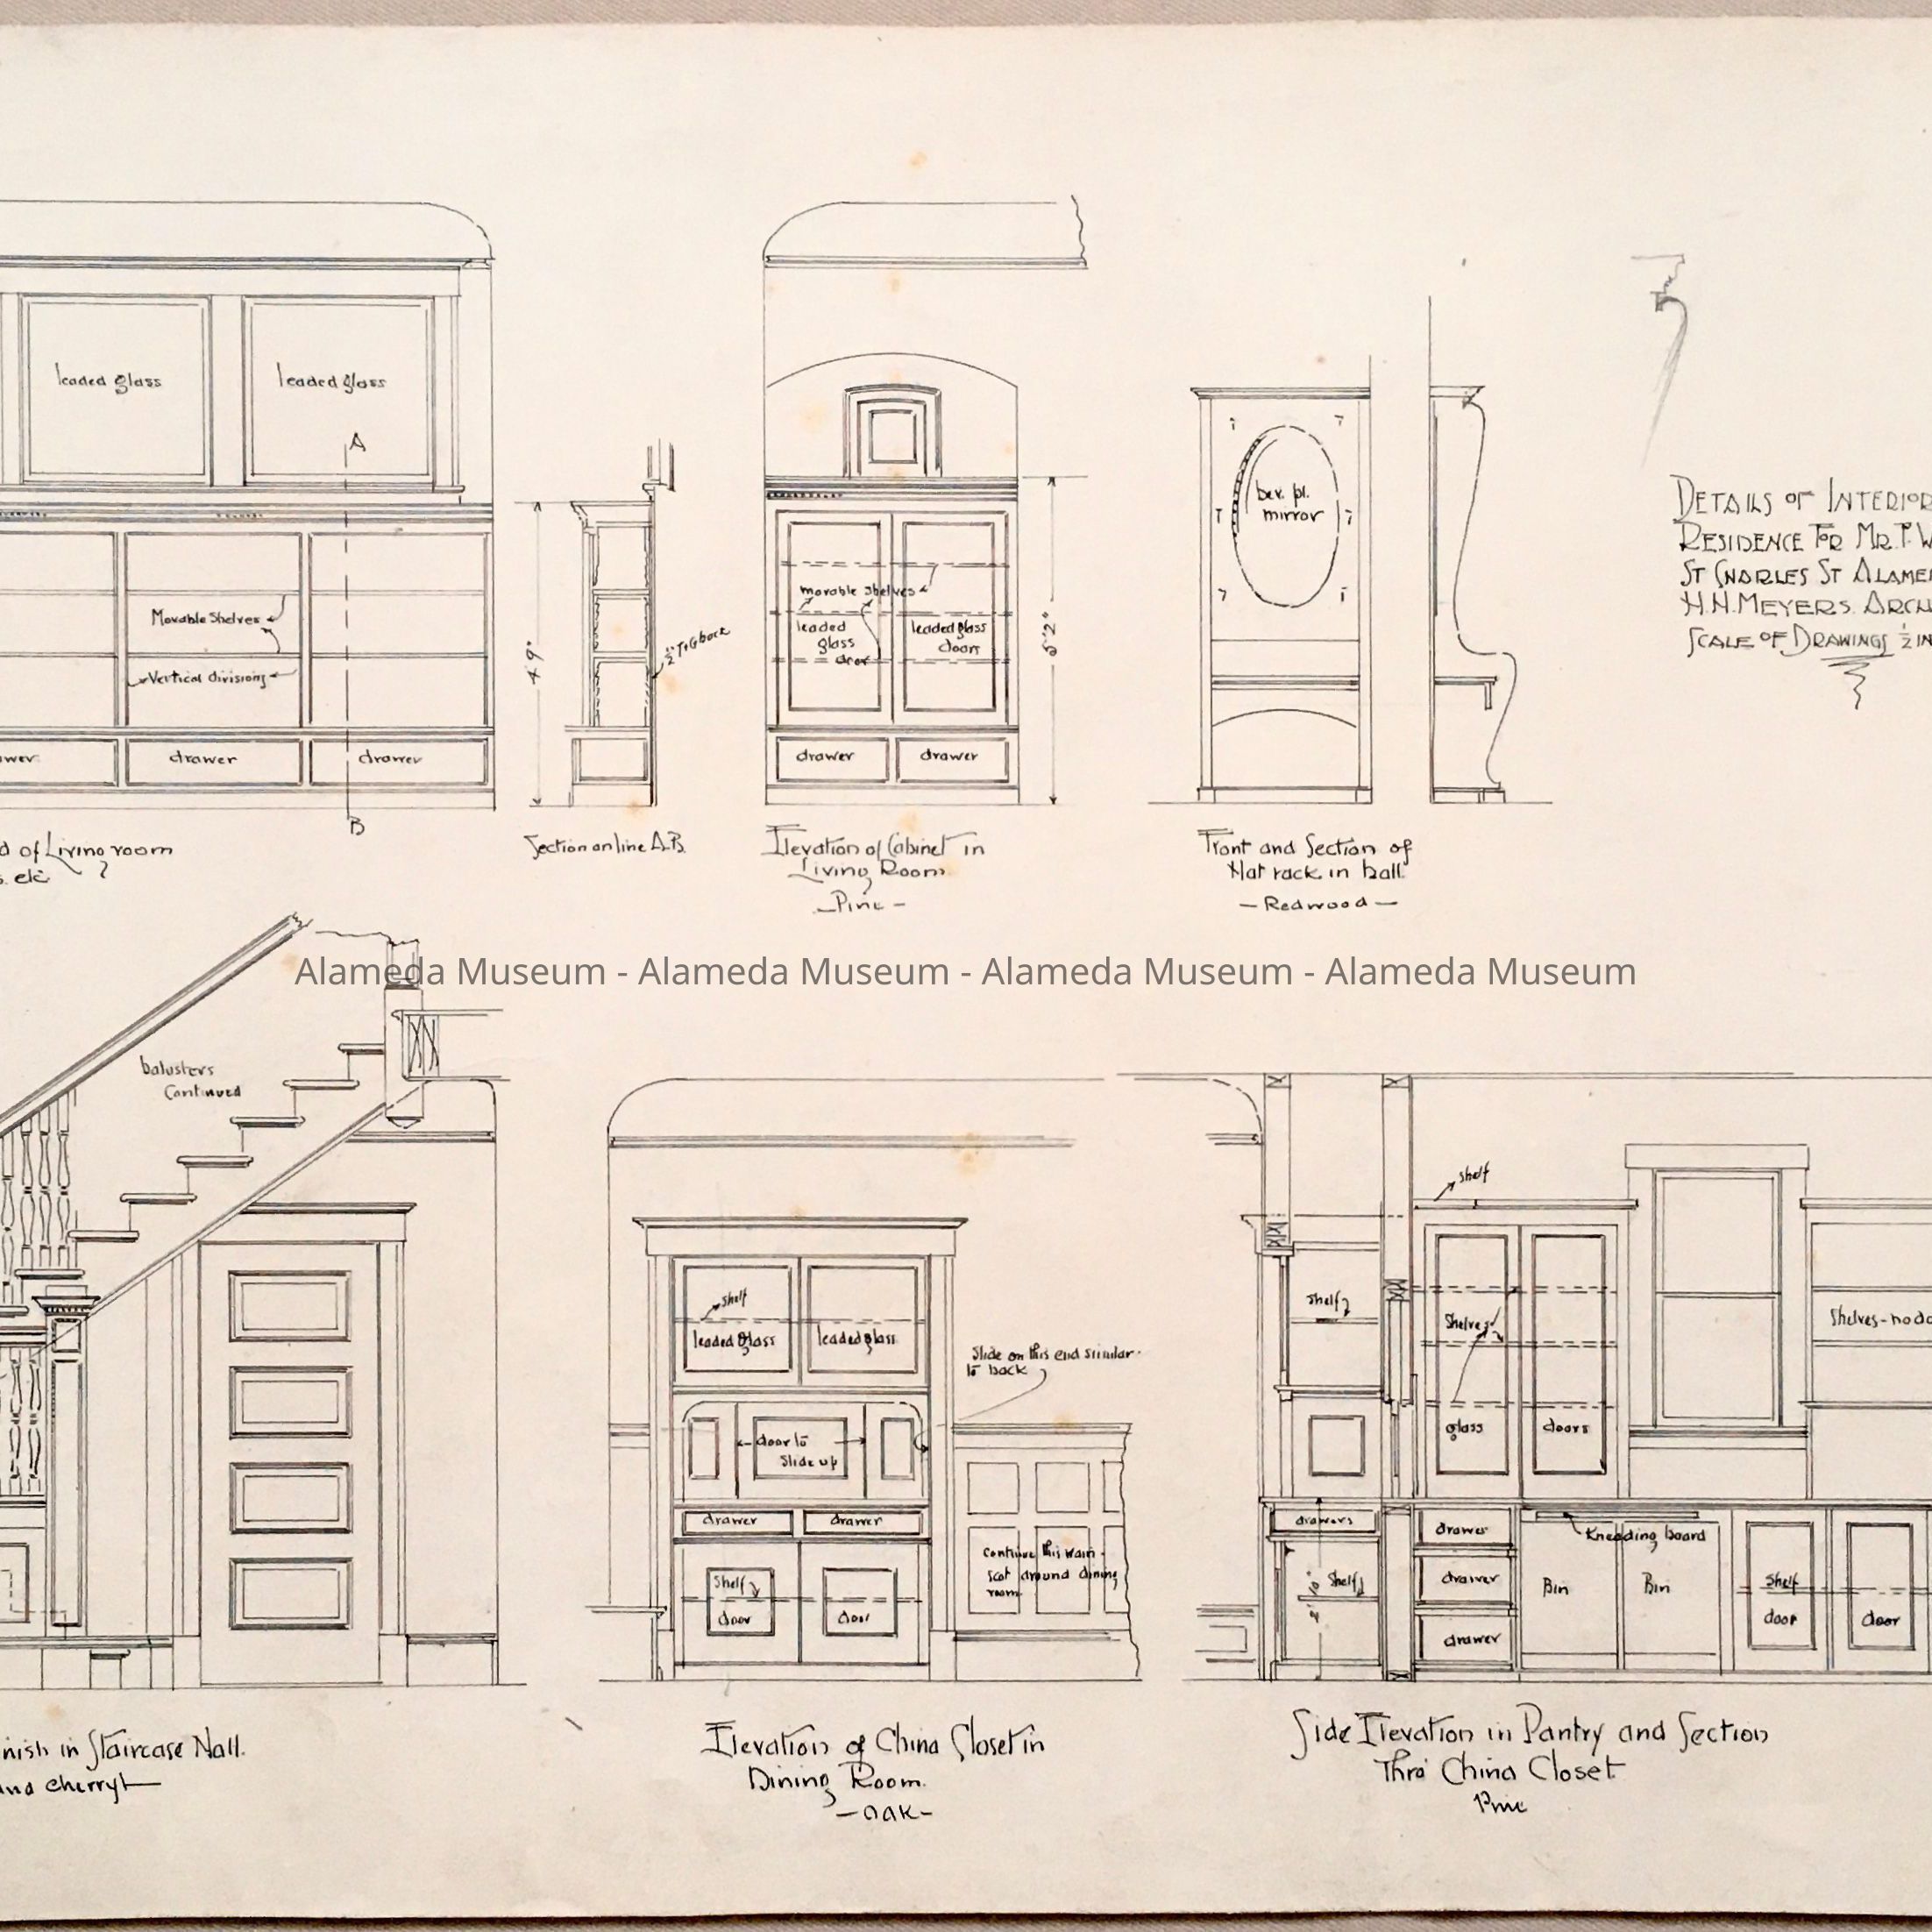 leaded glass
leaded glass
A
Movable Shelves
Vertical divisions
awer
drawer
drawer
B
d of Living room
s. etc
4'9"
1/2" T&G back
Section on line A.B.
movable shelves
leaded
glass
door
leaded glass
doors
drawer
drawer
5'2"
Elevation of Cabinet in
Living Room
- Pine -
bev. pl.
mirror
Front and Section of
Hat rack in hall
- Redwood -
DETAILS OF INTERIOR
RESIDENCE FOR MR. T. W
ST CHARLES ST ALAME
H.H. MEYERS. ARCH
SCALE OF DRAWINGS 1/2 IN
Alameda Museum - Alameda Museum - Alameda Museum - Alameda Museum
balusters
Continued
nish in Staircase Hall.
and cherry
shelf
leaded glass
leaded glass
door to
Slide up
drawer
drawer
Shelf
door
door
Slide on this end similar
to back
Continue this wain-
scot around dining
room
Elevation of China Closet in
Dining Room.
- OAK -
shelf
shelf
Shelves
glass
doors
Shelves - no do
drawers
2'10"
Shelf
drawer
drawer
drawer
Kneading board
Bin
Bin
Shelf
door
door
Side Elevation in Pantry and Section
Thro' China Closet
Pine